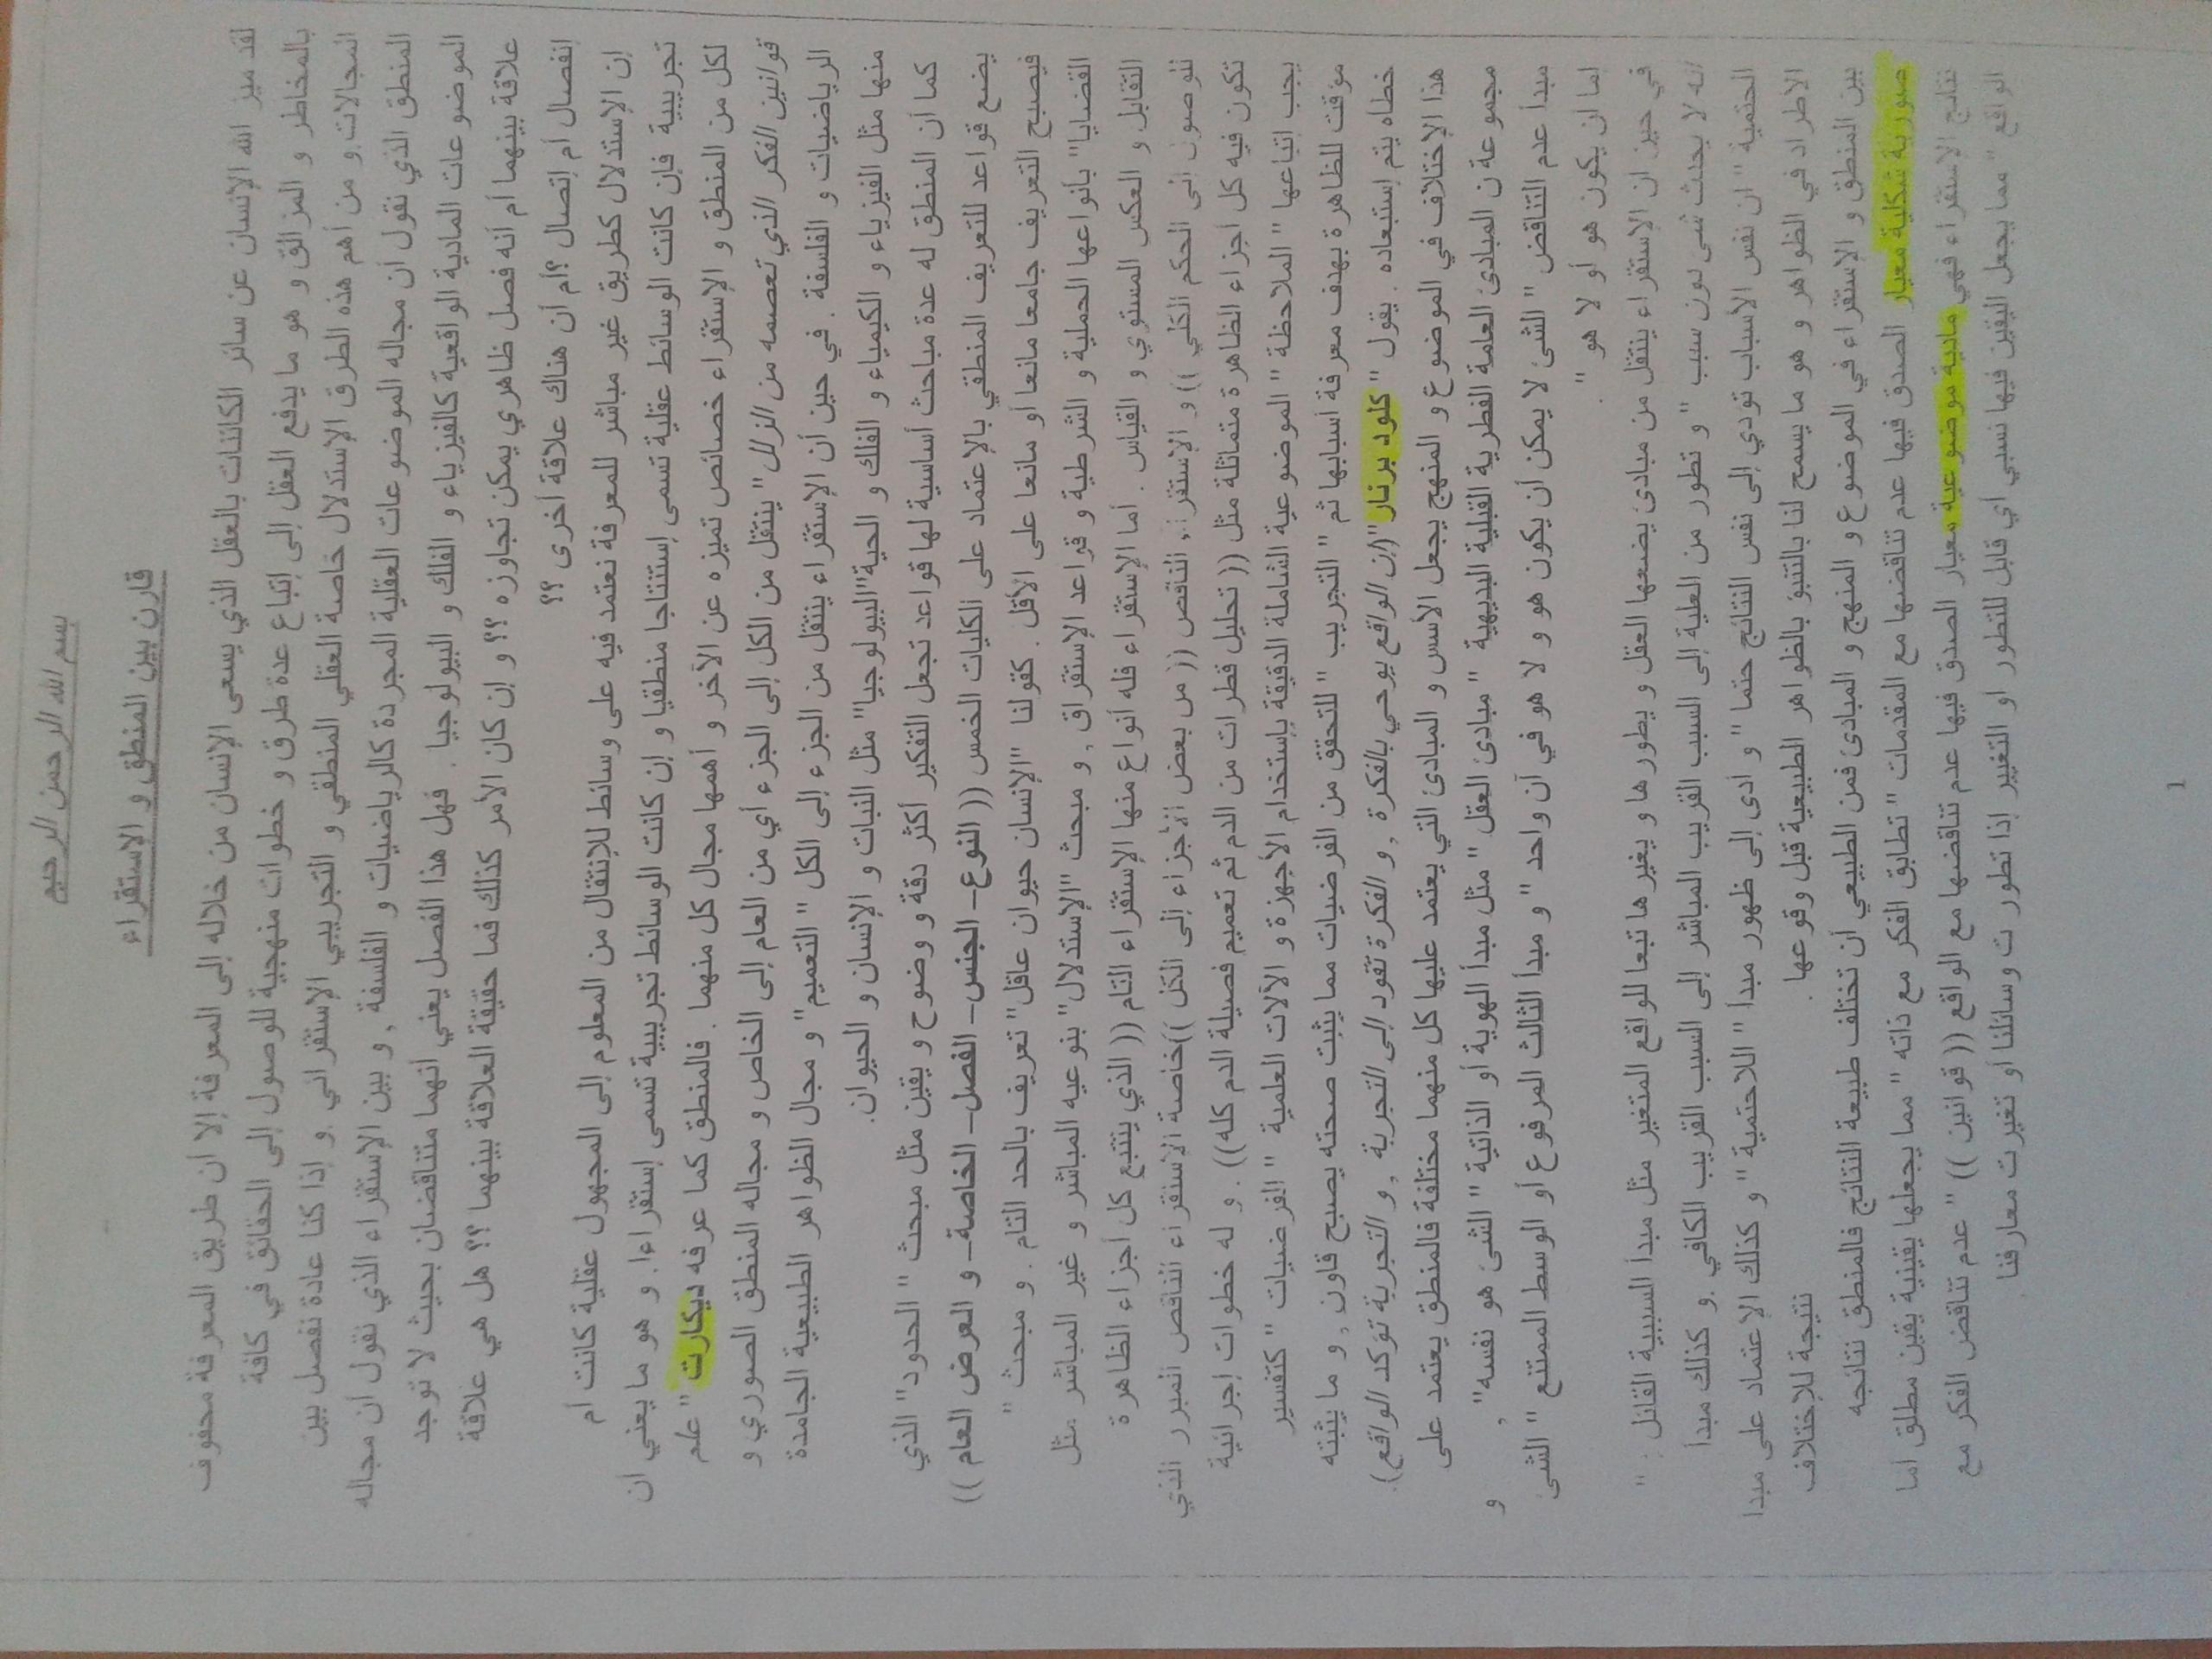 بسم الله الرحمن الرحيم
قارن بين المنطق و الإستقراء
لقد ميز الله الإنسان عن سائر الكائنات بالعقل الذي يسعى الإنسان من خلاله إلى المعرفة إلا ان طريق المعرفة محفوف
بالمخاطر و المزالق و هو ما يدفع العقل إلى إتباع عدة طرق و خطوات منهجية للوصول إلى الحقائق في كافة
المجالات و من أهم هذه الطرق الإستدلال خاصة العقلي المنطقي و التجريبي الإستقرائي و إذا كنا عادة نفصل بين
المنطق الذي نقول أن مجاله الموضوعات العقلية المجردة كالرياضيات و الفلسفة , و بين الإستقراء الذي نقول ان مجاله
الموضوعات المادية الواقعية كالفيزياء و الفلك و البيولوجيا . فهل هذا الفصل يعني انهما متناقضان بحيث لا توجد
علاقة بينهما أم أنه فصل ظاهري يمكن تجاوزه ؟؟ و إن كان الأمر كذلك فما حقيقة العلاقة بينهما ؟؟ هل هي علاقة
إنفصال أم إتصال ؟أم أن هناك علاقة أخرى ؟؟
إن الإستدلال كطريق غير مباشر للمعرفة نعتمد فيه على وسائط للإنتقال من المعلوم إلى المجهول عقلية كانت أم
تجريبية فإن كانت الوسائط عقلية تسمى إستنتاجا منطقيا و إن كانت الوسائط تجريبية تسمى إستقراءا. و هو ما يعني ان
لكل من المنطق و الإستقراء خصائص تميزه عن الأخر و أهمها مجال كل منهما . فالمنطق كما عرفه ديكارت " علم
قوانين الفكر الذي تعصمه من الزلل " ينتقل من الكل إلى الجزء أي من العام إلى الخاص و مجاله المنطق الصوري و
الرياضيات و الفلسفة . في حين أن الإستقراء ينتقل من الجزء إلى الكل " التعميم" و مجال الظواهر الطبيعية الجامدة
منها مثل الفيزياء و الكيمياء و الفلك و الحية"البيولوجيا" مثل النبات و الإنسان و الحيوان.
كما أن المنطق له عدة مباحث أساسية لها قواعد تجعل التفكير أكثر دقة و وضوح و يقين مثل مبحث " الحدود" الذي
يضع قواعد للتعريف المنطقي بالإعتماد على الكليات الخمس (( النوع – الجنس – الفصل – الخاصة – و العرض العام ))
فيصبح التعريف جامعا مانعا أو مانعا على الأقل . كقولنا "الإنسان حيوان عاقل" تعريف بالحد التام . و مبحث "
القضايا" بأنواعها الحملية و الشرطية و قواعد الإستغراق , و مبحث "الإستدلال" بنوعيه المباشر و غير المباشر مثل
التقابل و العكس المستوي و القياس . أما الإستقراء فله أنواع منها الإستقراء التام (( الذي يتتبع كل أجزاء الظاهرة
للوصول إلى الحكم الكلي )) و الإستقراء الناقص (( من بعض الأجزاء إلى الكل ))خاصة الإستقراء الناقص المبرر الذي
تكون فيه كل اجزاء الظاهرة متماثلة مثل (( تحليل قطرات من الدم ثم تعميم فصيلة الدم كله)) . و له خطوات إجرائية
يجب إتباعها " الملاحظة " الموضوعية الشاملة الدقيقة بإستخدام الأجهزة و الآلات العلمية " الفرضيات " كتفسير
مؤقت للظاهرة بهدف معرفة أسبابها ثم " التجريب " للتحقق من الفرضيات مما يثبت صحته يصبح قاون , و ما يثبته
خطاه يتم إستبعاده . يقول " كلود برنار "(إن الواقع يوحي بالفكرة , و الفكرة تقود إلى التجربة , و التجربة تؤكد الواقع).
هذا الإختلاف في الموضوع و المنهج يجعل الأسس و المبادئ التي يعتمد عليها كل منهما مختلفة فالمنطق يعتمد على
مجموعة ن المبادئ العامة الفطرية القبلية البديهية " مبادئ العقل " مثل مبدأ الهوية أو الذاتية " الشئ هو نفسه" , و
مبدأ عدم التناقض " الشئ لا يمكن أن يكون هو و لا هو في آن واحد " و مبدأ الثالث المرفوع أو الوسط الممتنع " الشئ
إما ان يكون هو أو لا هو " .
في حين ان الإستقراء ينتقل من مبادئ يضعها العقل و يطورها و يغيرها تبعا للواقع المتغير مثل مبدأ السببية القائل : "
انه لا يحدث شئ دون سبب " و تطور من العلية إلى السبب القريب المباشر إلى السبب القريب الكافي و كذلك مبدأ
الحتمية " ان نفس الأسباب تؤدي إلى نفس النتائج حتما " و ادى إلى ظهور مبدأ " اللاحتمية " و كذلك الإعتماد على مبدا
الاطراد في الظواهر و هو ما يسمح لنا بالتنبؤ بالظواهر الطبيعية قبل وقوعها . نتيجة للإختلاف
بين المنطق و الإستقراء في الموضوع و المنهج و المبادئ فمن الطبيعي أن تختلف طبيعة النتائج فالمنطق نتائجه
صورية شكلية معيار الصدق فيها عدم تناقضها مع المقدمات "تطابق الفكر مع ذاته " مما يجعلها يقينية يقين مطلق اما
نتائج الإستقراء فهي مادية موضوعية معيار الصدق فيها عدم تناقضها مع الواقع (( قوانين )) " عدم تناقض الفكر مع
الواقع " مما يجعل اليقين فيها نسبي أي قابل للتطور او التغيير إذا تطورت وسائلنا أو تغيرت معارفنا .
1